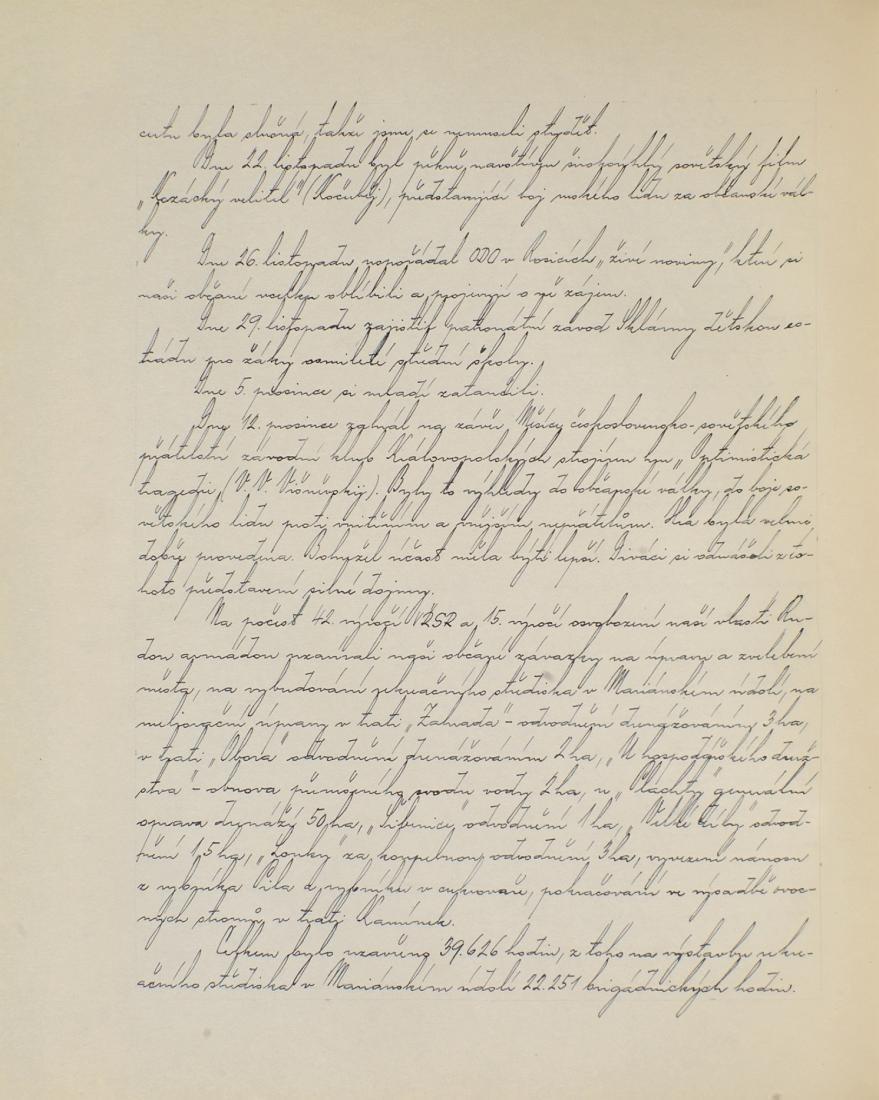 certu byla slušná, takže jsme se nemuseli stydět.
Dne 22. listopadu byl pěkně navštíven širokoúhlý sovětský film
„Kozácký velitel" (Kočuběj), představující boj ruského lidu za občanské vál-
ky.
Dne 26. listopadu uspořádal ODO v Rosicích „živé noviny," které si
naši občané vcelku oblíbili a projevují o ně zájem.
Dne 29. listopadu zajistil patronátní závod Sklárny dětskou es-
trádu pro žáky osmileté střední školy.
Dne 5. prosince si mladí zatančili.
Dne 12. prosince zahrál na závěr Měsíce československo-sovětského
přátelství závodní klub Královopolských strojíren hru „Optimistická
tragedie" (V. V. Višněvskij). Byly to výhledy do občanské války, do boje so-
větského lidu proti vnitřním a vnějším nepřátelům. Hra byla velmi
dobře provedena. Bohužel účast měla býti lepší. Diváci si odnášeli z to-
hoto představení silné dojmy.
Na počest 42. výročí VŘSR a 15. výročí osvobození naší vlasti Ru-
dou armádou uzavírali naši občané závazky na úpravu a zvelebení
města, na vybudování rekreačního střediska v Mariánském údolí, na
meliorační úpravy v trati „Zahrada" - odvodnění drenážováním 3 ha,
v trati „Obora" odvodnění drenážováním 2 ha, „U hospodářského druž-
stva" - obnova příkopního svodu vody 2 ha, u „Šlachty" generální
oprava drenáží 50 ha, „Šibenice" odvodnění 1 ha, „Velké díly" odvod-
nění 1,5 ha, „Louky" za koupelnou odvodnění 3 ha, vyvezení nánosu
z rybníka Pila a rybníku v cukrovaře, pokračování ve výsadbě ovoc-
ných stromů v trati Kamínek.
Celkem bylo uzavřeno 39.626 hodin, z toho na výstavbu rekre-
ačního střediska v Mariánském údolí 22.251 brigádnických hodin.